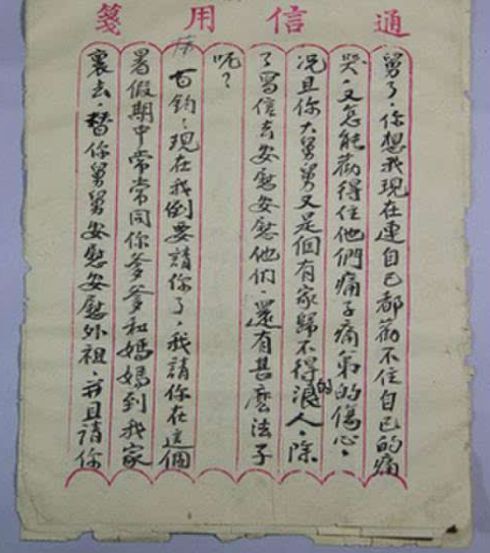 通信用箋
舅了，你想我現在連自己都勸不住自己的痛
哭，又怎能勸得住他們痛子痛弟的傷心，
況且你大舅舅又是個有家歸不得的浪人，除
了寫信去安慰安慰他們，還有甚麼法子
呢？
百鈞，現在我倒要請你了，我請你在這個
暑假期中常常同你爹爹和媽媽到我家
裏去，替你舅舅安慰安慰外祖，並且請你